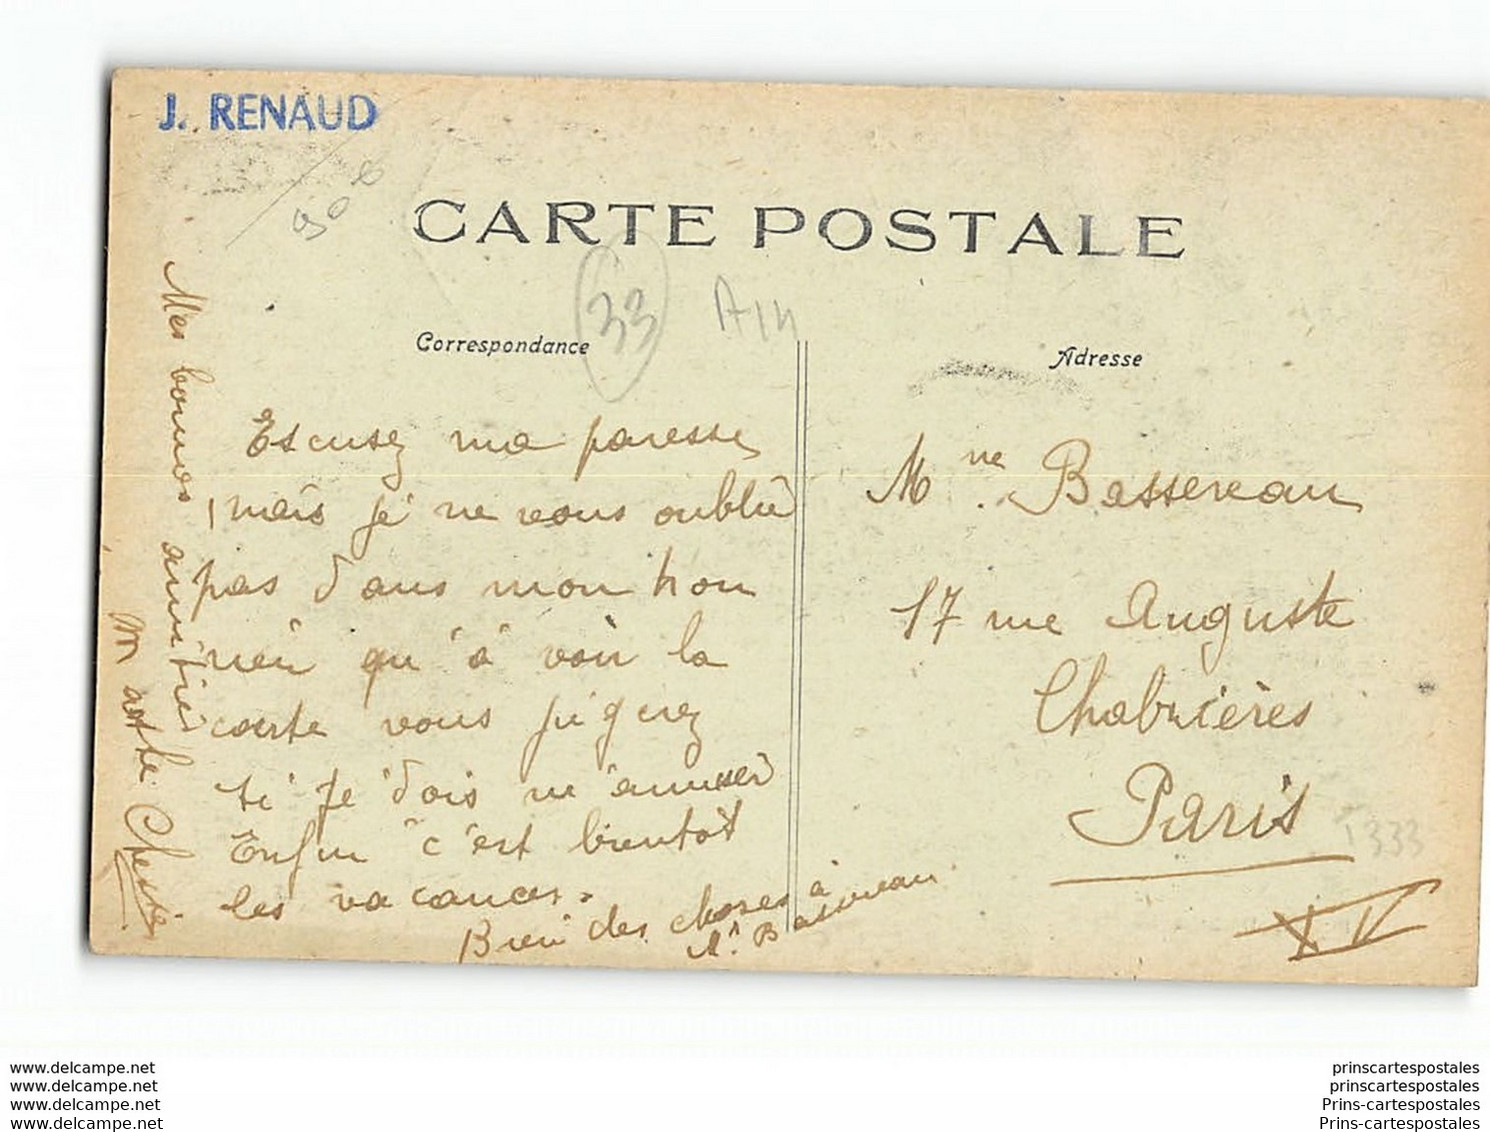 J. RENAUD
CARTE POSTALE
33
Correspondance
Adresse
Escusez ma paresse
mais je ne vous oublie
pas dans mon
qu'à voir la
carte vous jugerez
si je dois m'amuser
Enfin c'est bientôt
les vacances.
Bien des choses à
Mr Bassereau
Mes bonnes amitiés
Mme. Bassereau
17 rue Auguste
Chabrières
Paris
XV
T333
www.delcampe.net
www.delcampe.net
www.delcampe.net
www.delcampe.net
prinscartespostales
prinscartespostales
Prins-cartespostales
Prins-cartespostales